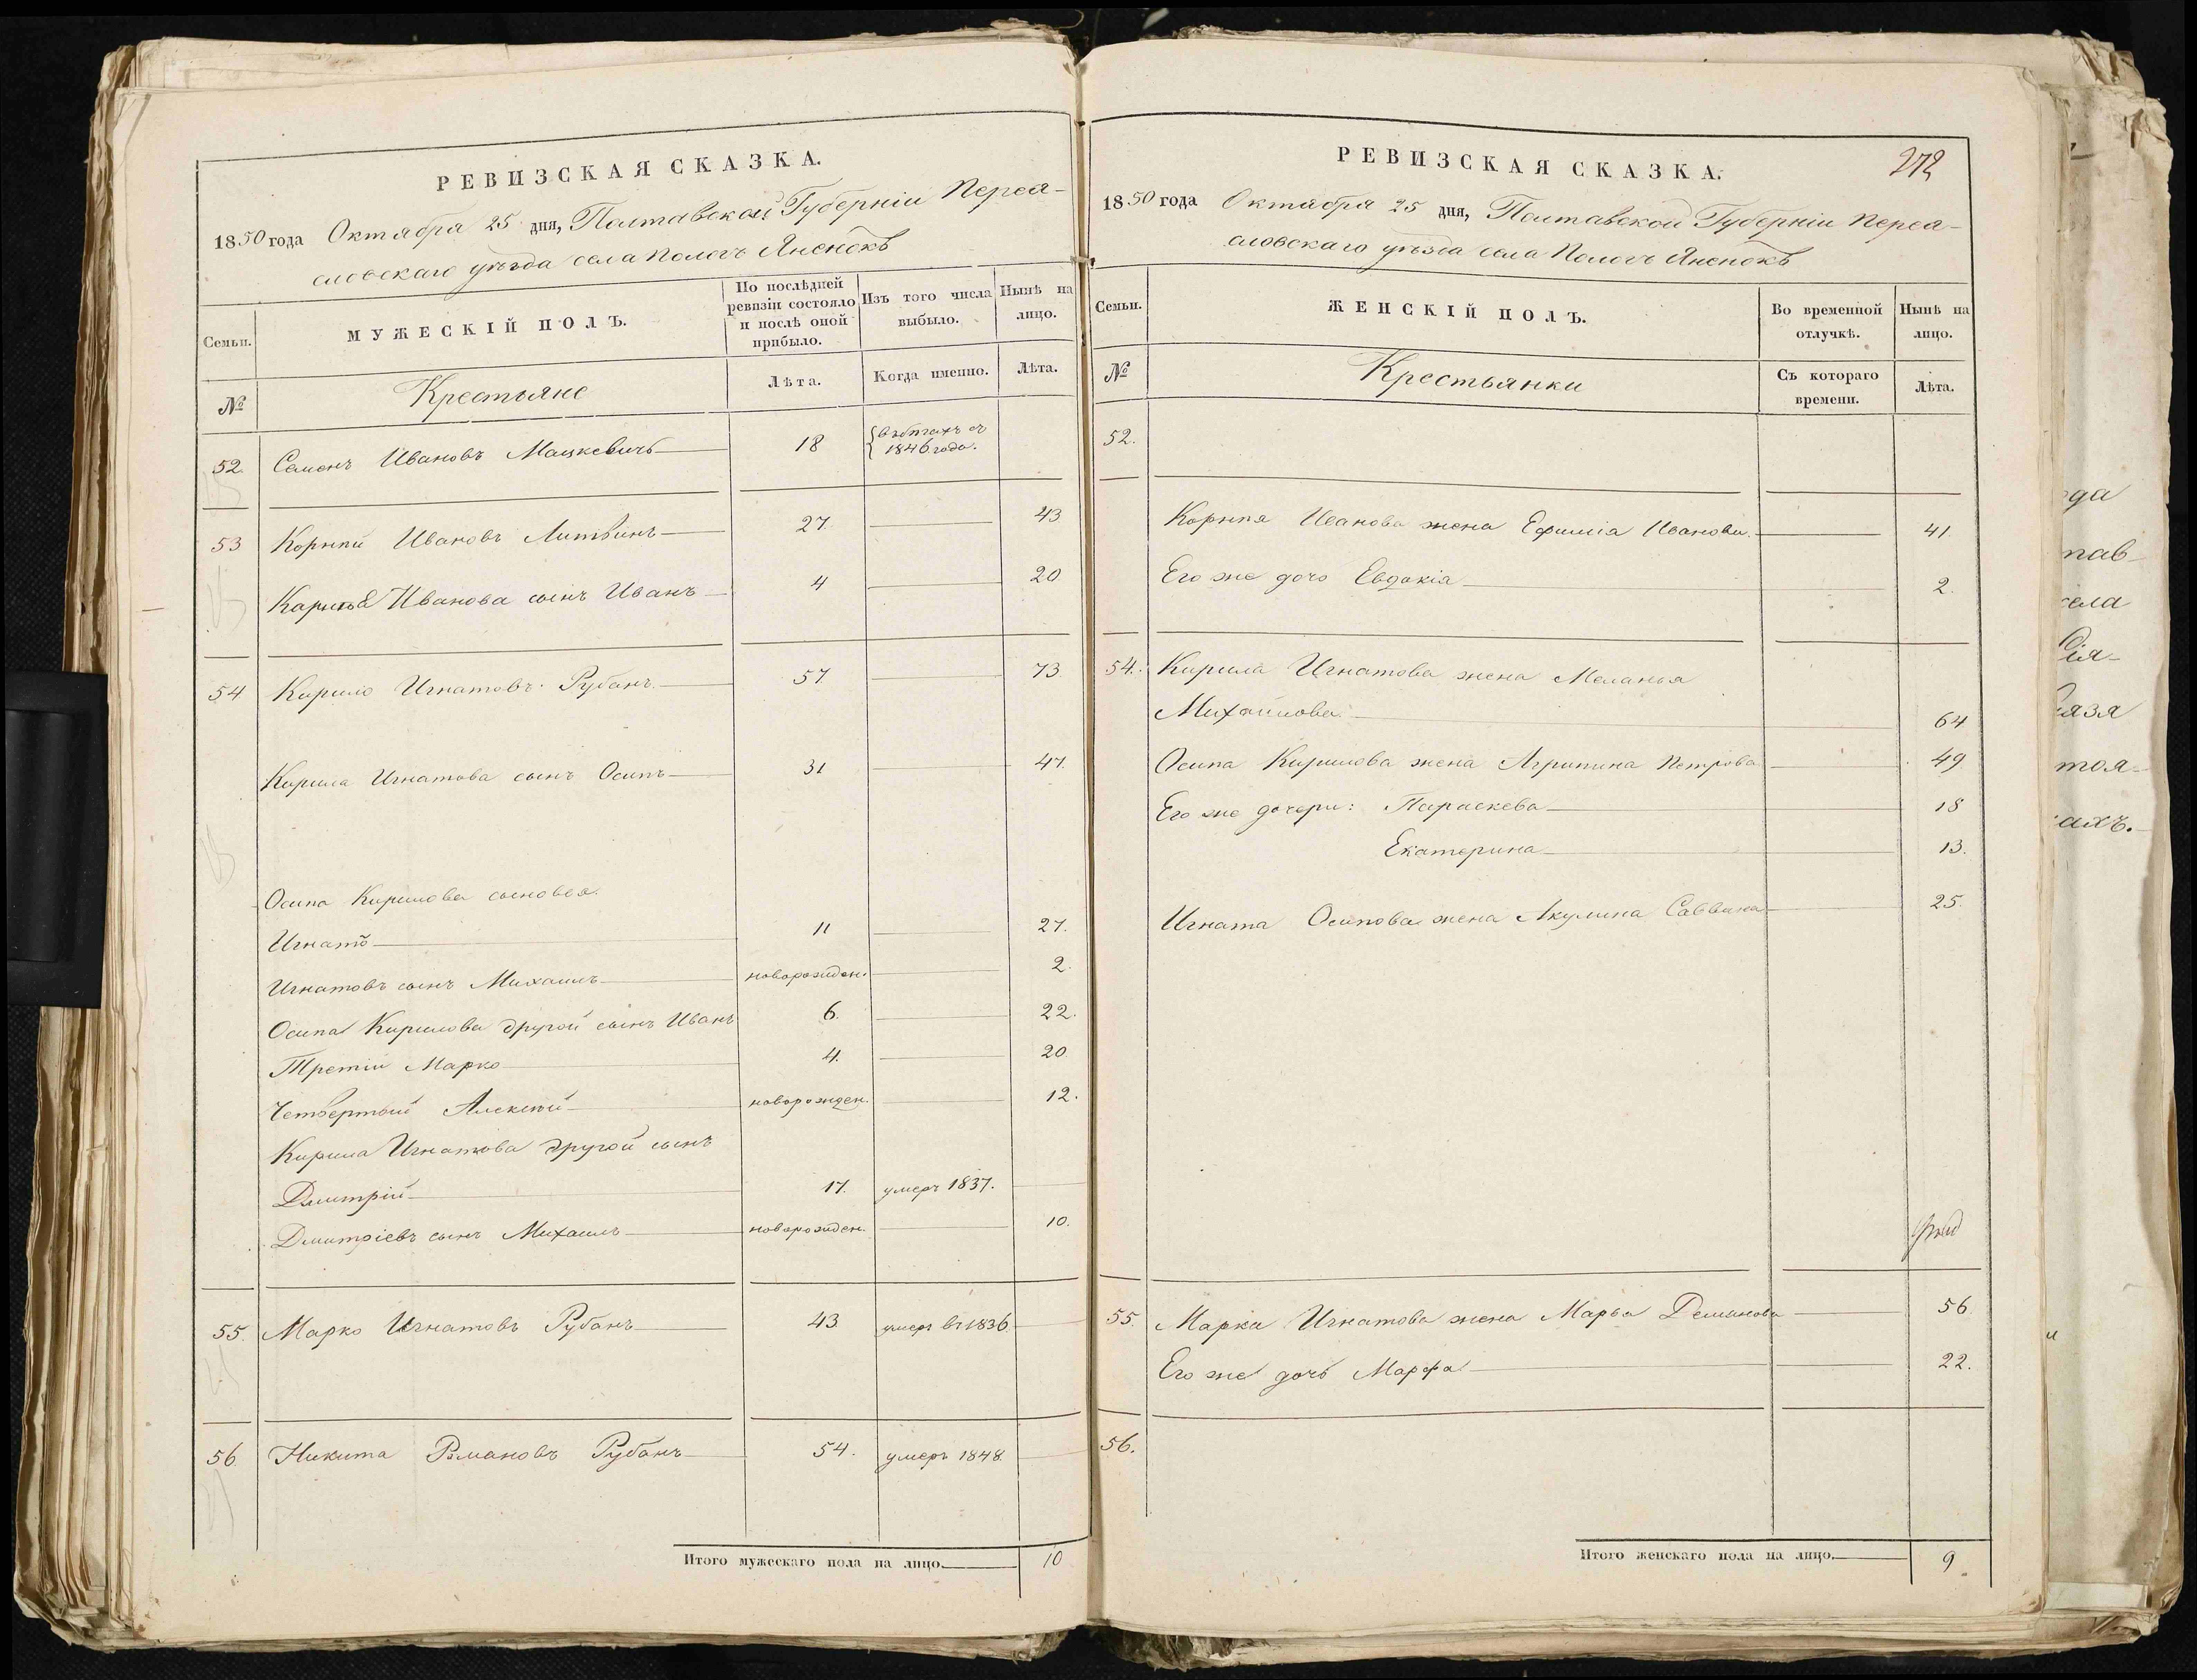 РЕВИЗСКАЯ СКАЗКА.
1850 года Октября 25 дня, Полтавской Губерніи Перея-
словскаго уѣзда села Пологъ Яненокъ
Семьи.
МУЖЕСКІЙ ПОЛЪ.
По послѣдней ревизіи состояло и послѣ оной прибыло.
Изъ того числа выбыло.
Нынѣ на лицо.
№
Крестьяне
Лѣта.
Когда именно.
Лѣта.
52. Семенъ Ивановъ Мацкевичъ 18 въ бѣгахъ съ 1846 года.
53 Корнѣй Ивановъ Литвинъ 27. 43
Корнѣя Иванова сынъ Иванъ 4 20
54 Кирило Игнатовъ Рубанъ 57. 73.
Кирила Игнатова сынъ Осипъ 31 47.
Осипа Кирилова сыновья.
Игнатъ 11 27.
Игнатовъ сынъ Михаилъ новорожден. 2.
Осипа Кирилова другой сынъ Иванъ 6. 22.
Третій Марко 4. 20
Четвертый Алексѣй новорожден. 12.
Кирила Игнатова другой сынъ
Дмитрій 17. умеръ 1837.
Дмитріевъ сынъ Михаилъ новорожден. 10.
55. Марко Игнатовъ Рубанъ 43. умеръ въ 1836.
56. Никита Романовъ Рубанъ 54. умеръ 1848.
Итого мужескаго пола на лицо. 10
РЕВИЗСКАЯ СКАЗКА.
272
1850 года Октября 25 дня, Полтавской Губерніи Перея-
словскаго уѣзда села Пологъ Яненокъ
Семьи.
ЖЕНСКІЙ ПОЛЪ.
Во временной отлучкѣ.
Нынѣ на лицо.
№
Крестьянки
Съ котораго времени.
Лѣта.
52.
Корнѣя Иванова жена Ефимія Иванова. 41.
Его же дочь Евдокія 2.
54. Кирила Игнатова жена Меланья
Михайлова 64
Осипа Кирилова жена Агрипина Петрова 49
Его же дочери: Параскева 18
Екатерина 13.
Игната Осипова жена Акулина Саввина 25.
55. Марка Игнатова жена Марья Демянова 56.
Его же дочь Марфа 22.
56.
Итого женскаго пола на лицо. 9.